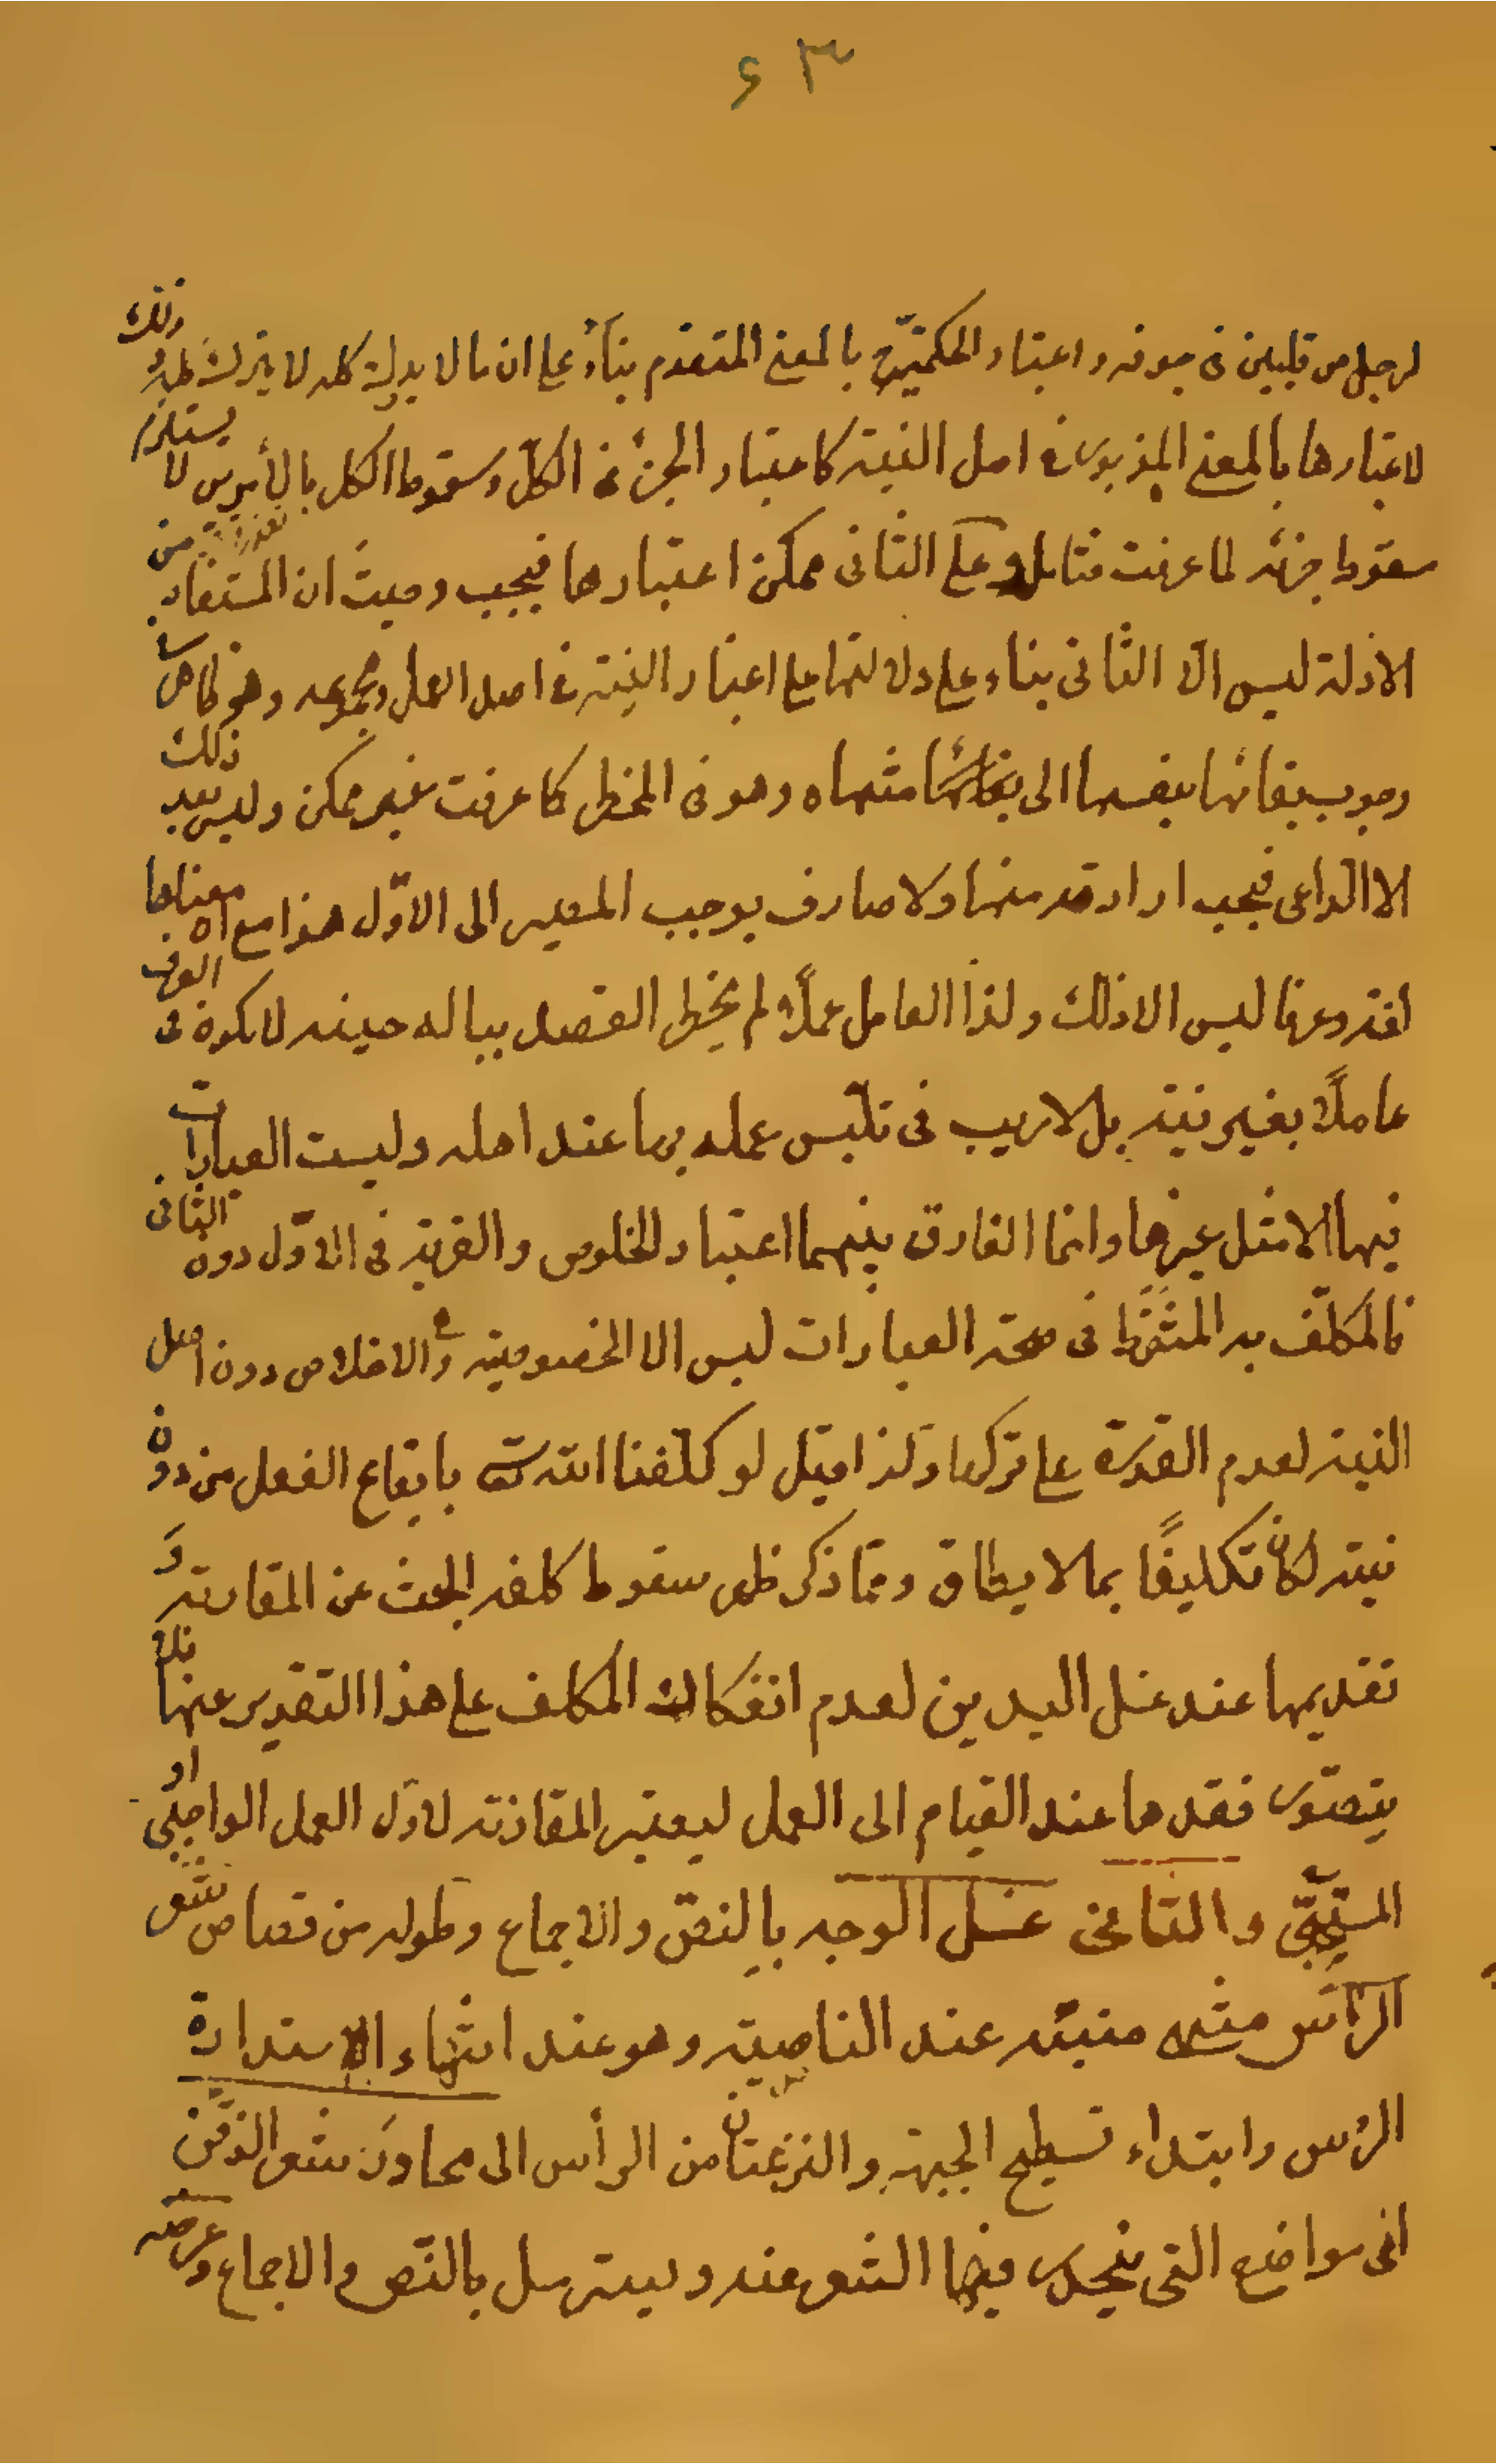 ٤٣
لرجل من قلبين في جوفه واعتبار الحكميّة بالمعنى المتقدم بناءً على ان ما لا يدرك كله لا يترك كله وذلك
لاعتبارها بالمعنى المزبور في اصل النية كاعتبار الجزء في الكلّ وسقوط الكل بالمأيوس لا يستلزم
سقوط جزئه لما عرفت فتامل وعلى الثاني ممكن اعتبارها فيجب وحيث ان المستفاد من
الادلة ليس الا الثاني بناء على دلالتها على اعتبار النية في اصل العمل ومجموعه وهو ظاهر في
وجوب بقائها بنفسها الى منتهاه وهو في المخطر كما عرفت غير ممكن وليس بعد ذلك
الا الداعي فيجب ارادته منها ولا صارف يوجب المصير الى الاوّل هذا مع ان معناها
لغة وعرفا ليس الا ذلك ولذا العامل عملاً لم يخطر القصد بباله حينه لا يكون في العرف
عاملاً بغير نية بل لا ريب في تلبس عمله بها عند اهله وليست العبادات
فيها الا مثل غيرها وانما الفارق بينهما اعتبار الخلوص والقربة في الاوّل دون الثاني
فالمكلّف به المشترط في صحة العبادات ليس الا الخصوصية والاخلاص دون اصل
النية لعدم القدرة على تركها ولذا قيل لو كلّفنا الله تعالى بايقاع الفعل من دون
نية لكان تكليفًا بما لا يطاق ومما ذكر ظهر سقوط كلفه البحث عن المقارنة وَ
تقديمها عند غسل اليدين لعدم انفكاك المكلف على هذا التقدير عنها فلا
يتصوّر فقدها عند القيام الى العمل ليعتبر المقارنة لاوّل العمل الواجبي او
المستحبّي والثاني غسل الوجه بالنصّ والاجماع وطوله من قصاص شعر
الرأس منتهى منبته عند الناصية وهو عند انتهاء الاستدارة
الرأس وابتداء تسطيح الجبهة والنزعتان من الرأس الى محادر شعر الذقن
اي مواضع التي ينحدر فيها الشعر عنه ويسترسل بالنّص والاجماع وعرضه